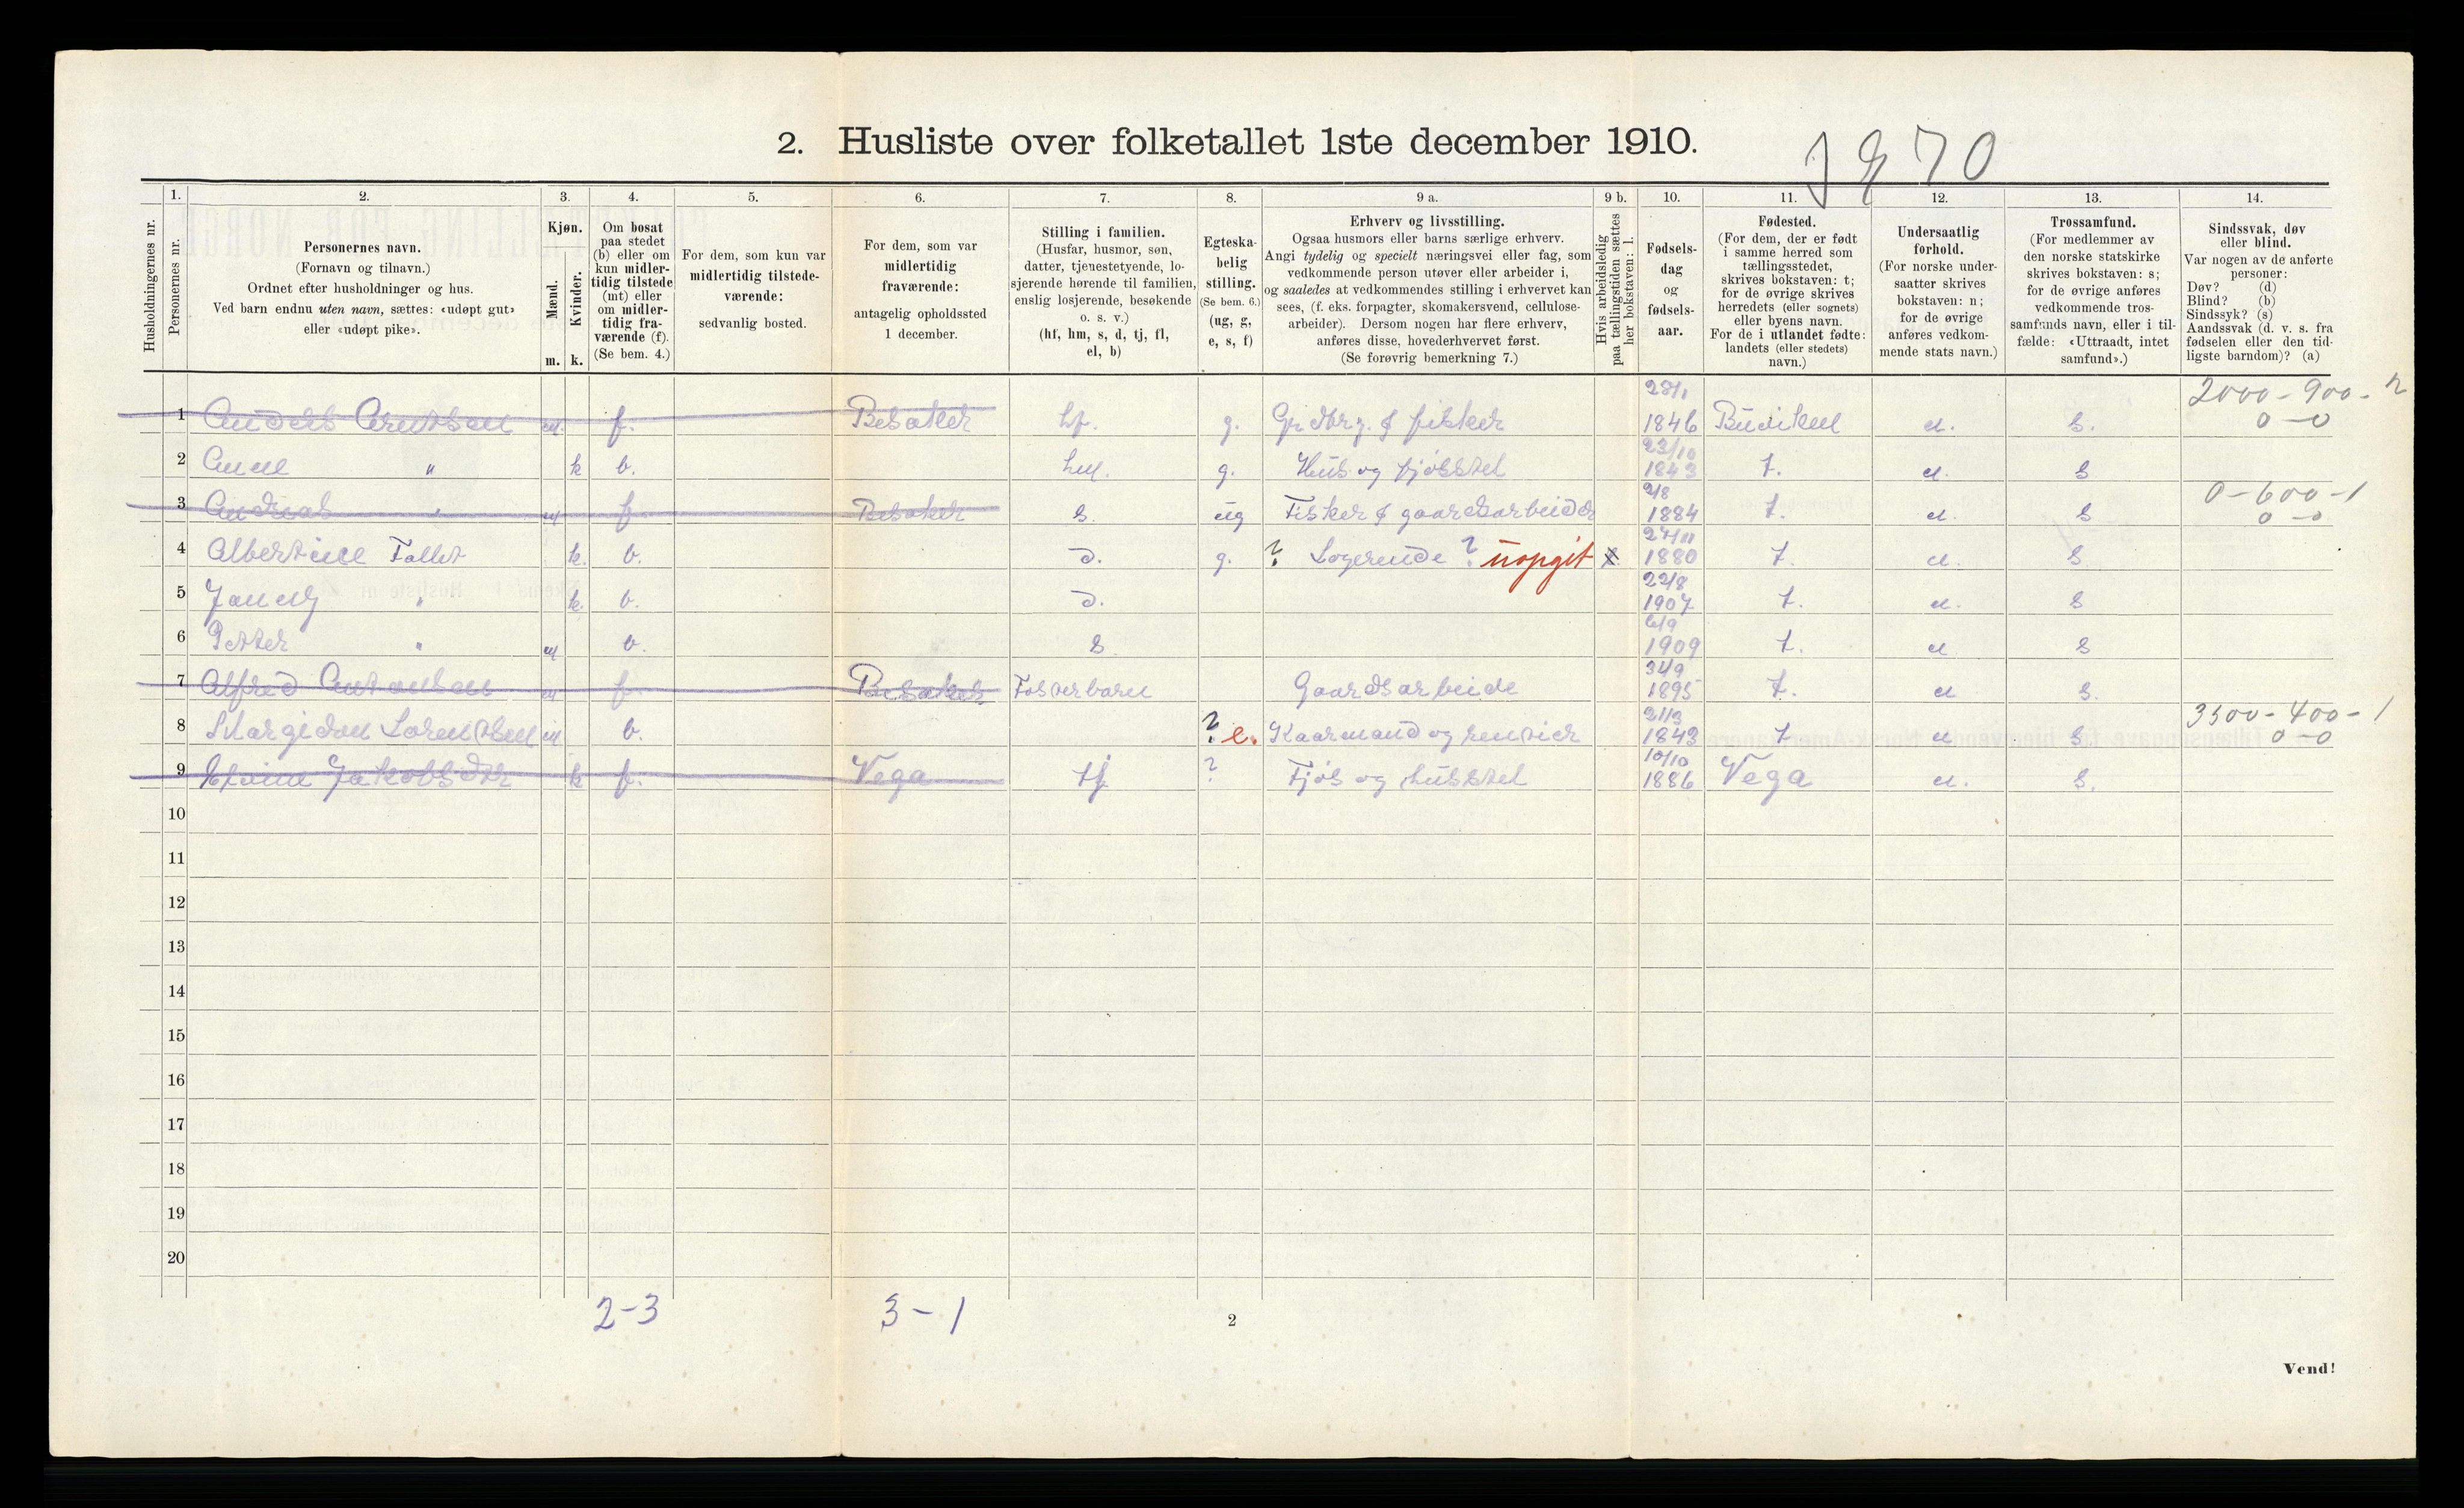 2. Husliste over folketallet 1ste december 1910.
1870
1. 2. 3. 4. 5. 6. 7. 8. 9 a. 9 b. 10. 11. 12. 13. 14.
Husholdningernes nr.
Personernes nr.
Personernes navn.
(Fornavn og tilnavn.)
Ordnet efter husholdninger og hus.
Ved barn endnu uten navn, sættes: «udøpt gut»
eller «udøpt pike».
Kjøn.
Mænd.
Kvinder.
m. k.
Om bosat
paa stedet
(b) eller om
kun midler-
tidig tilstede
(mt) eller
om midler-
tidig fra-
værende (f).
(Se bem. 4.)
For dem, som kun var
midlertidig tilstede-
værende:
sedvanlig bosted.
For dem, som var
midlertidig
fraværende:
antagelig opholdssted
1 december.
Stilling i familien.
(Husfar, husmor, søn,
datter, tjenestetyende, lo-
sjerende hørende til familien,
enslig losjerende, besøkende
o. s. v.)
(hf, hm, s, d, tj, fl,
el, b)
Egteska-
belig
stilling.
(Se bem. 6.)
(ug, g,
e, s, f)
Erhverv og livsstilling.
Ogsaa husmors eller barns særlige erhverv.
Angi tydelig og specielt næringsvei eller fag, som
vedkommende person utøver eller arbeider i,
og saaledes at vedkommendes stilling i erhvervet kan
sees, (f. eks. forpagter, skomakersvend, cellulose-
arbeider). Dersom nogen har flere erhverv,
anføres disse, hovederhvervet først.
(Se forøvrig bemerkning 7.)
Hvis arbeidsledig
paa tællingstiden sættes
her bokstaven: l.
Fødsels-
dag
og
fødsels-
aar.
Fødested.
(For dem, der er født
i samme herred som
tællingsstedet,
skrives bokstaven: t;
for de øvrige skrives
herredets (eller sognets)
eller byens navn.
For de i utlandet fødte:
landets (eller stedets)
navn.)
Undersaatlig
forhold.
(For norske under-
saatter skrives
bokstaven: n;
for de øvrige
anføres vedkom-
mende stats navn.)
Trossamfund.
(For medlemmer av
den norske statskirke
skrives bokstaven: s;
for de øvrige anføres
vedkommende tros-
samfunds navn, eller i til-
fælde: «Uttraadt, intet
samfund».)
Sindssvak, døv
eller blind.
Var nogen av de anførte
personer:
Døv? (d)
Blind? (b)
Sindssyk? (s)
Aandssvak (d. v. s. fra
fødselen eller den tid-
ligste barndom)? (a)
1 Anders Arntsen m. f. Besaker hf. g. Grdbrg. & fisker 28/1 1846 n. s. 2000-900-2 0-0
2 Anne " k b. hm. g. Hus og fjøsstel 23/10 1843 t. n. s
3 Andreas " m f Besaker s. ug Fisker & gaardsarbeider 9/8 1884 t. n. s 0-600-1 0-0
4 Albertine Follet k. b. d. g. ? Logerende ? uopgit 27/11 1880 t. n. s.
5 " k. b. d. 22/8 1907 t. n. s
6 Petter " m b. s 6/9 1909 t. n s
7 Alfred Antonsen m f Besaker Fosterbarn Gaardsarbeide 1895 t. n s.
8 Margidon Lorentsen m b. ? e. Kaarmand og rentier 21/3 1843 t n s. 3300-400-1 0-0
9 Jakobsdtr k f. Vega tj ? Fjøs og husstel 10/10 1886 Vega n. s.
10
11
12
13
14
15
16
17
18
19
20
2-3 3-1
2
Vend!